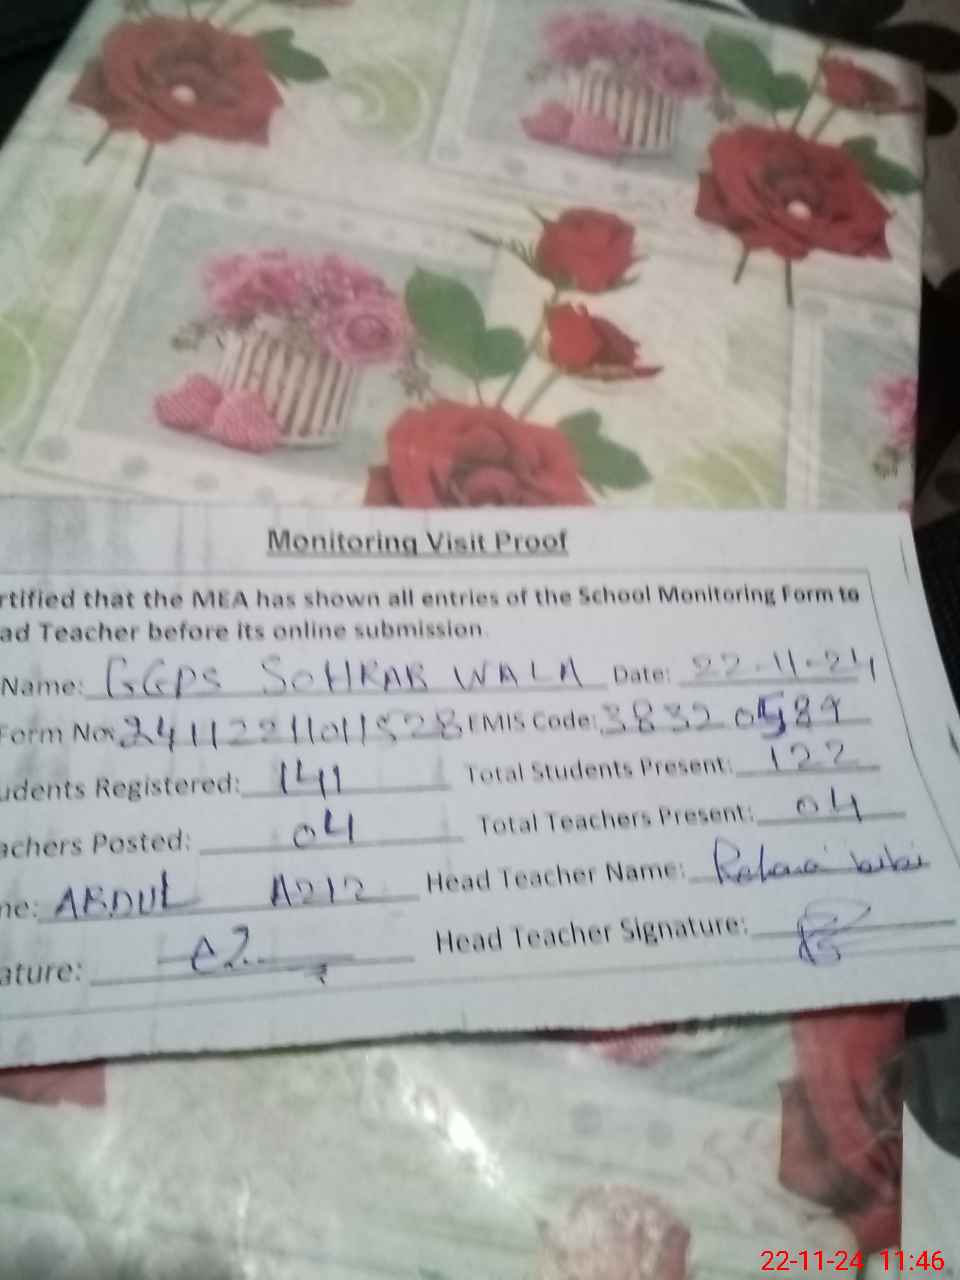 Monitoring Visit Proof
rtified that the MEA has shown all entries of the School Monitoring Form to
ad Teacher before its online submission.
Name: GGPS SOHRAB WALA Date: 22-11-24
Form No: EMIS Code: 38320589
udents Registered: 141 Total Students Present: 122
achers Posted: 04 Total Teachers Present: 04
me: ABDUL AZIZ Head Teacher Name: bibi
ature: Head Teacher Signature:
22-11-24 11:46